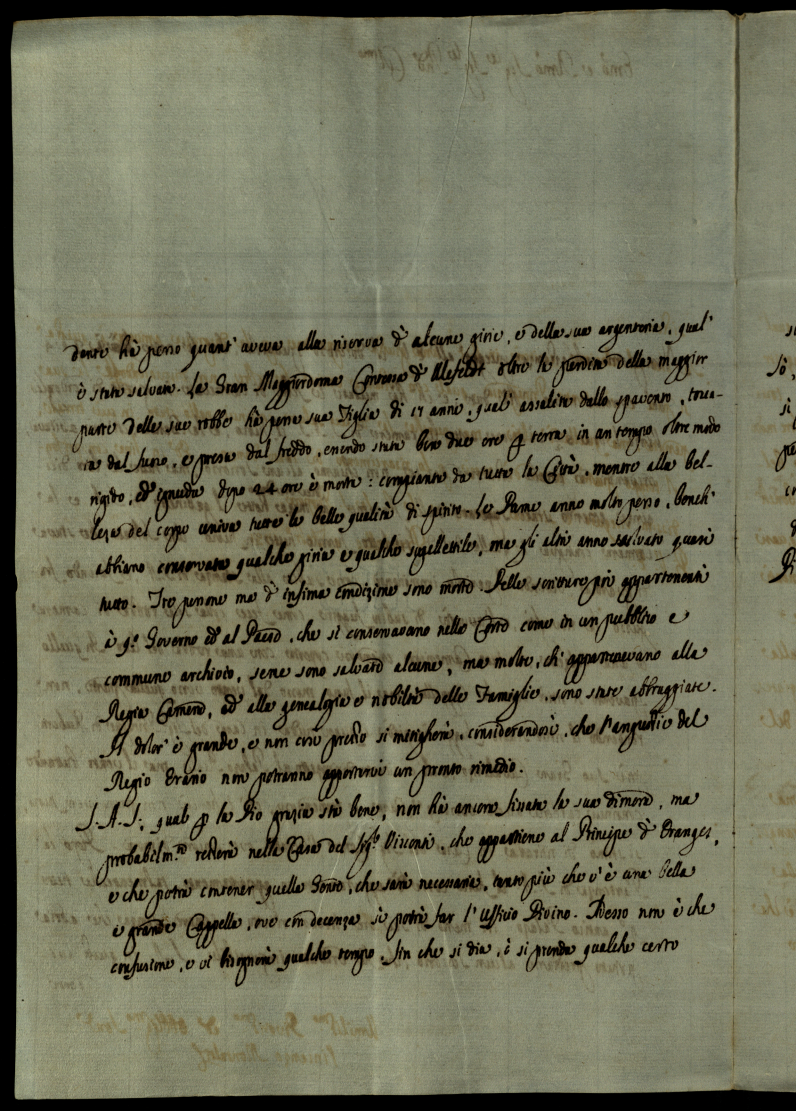 dente hà perso quant' aveva alla riserva d' alcune gioie, e della sua argenteria, qual'
è stata salvata. La Gran Maggiordoma Contessa d' Ulefeldt oltre la perdita della maggior
parte delle sue robbe hà persa sua Figlia di 17 anni, qual' assalita dallo spavento, tocca-
ta dal fuoco, e presa dal freddo, essendo stata ben due ore p terra in un tempo oltre modo
rigido, ed ignuda dopo 24 ore è morta: compianta da tutta la Città, mentre alla bel-
leza del corpo univa tutte le belle qualità di spirito. Le Dame anno molto perso, bench'
abbiano conservata qualche gioia e qualche supellettile, ma gli altri anno salvato quasi
tutto. Tre persone ma d' infima condizione sono morte. Delle scritture poi appartenenti
à qº Governo ed al Paese, che si conservavano nella Corte come in un pubblico e
commune archivio, sene sono salvate alcune, ma molte, ch' appartenevano alla
Regia Camera, ed alla genealogia e nobiltà delle Famiglie, sono state abbruggiate.
Il dolor' è grande, e non così presto si mitigherà, considerandosi, che l'angustie del
Regio Erario non potranno apportarvi un pronto rimedio.
S. A. S. qual p la Dio grazia stà bene, non hà ancora fissata la sua dimora, ma
probabilm.te resterà nella Casa del Sigr Visconti, che appartiene al Principe d' Oranges,
e che potrà contener quella Gente, che sarà necessaria, tanto più che v' è una bella
e grande Cappella, ove con decenza si potrà far l' Uffizio Divino. Adesso non è che
confusione, e vi bisognerà qualche tempo, fin che si dia, ò si prenda qualche certo